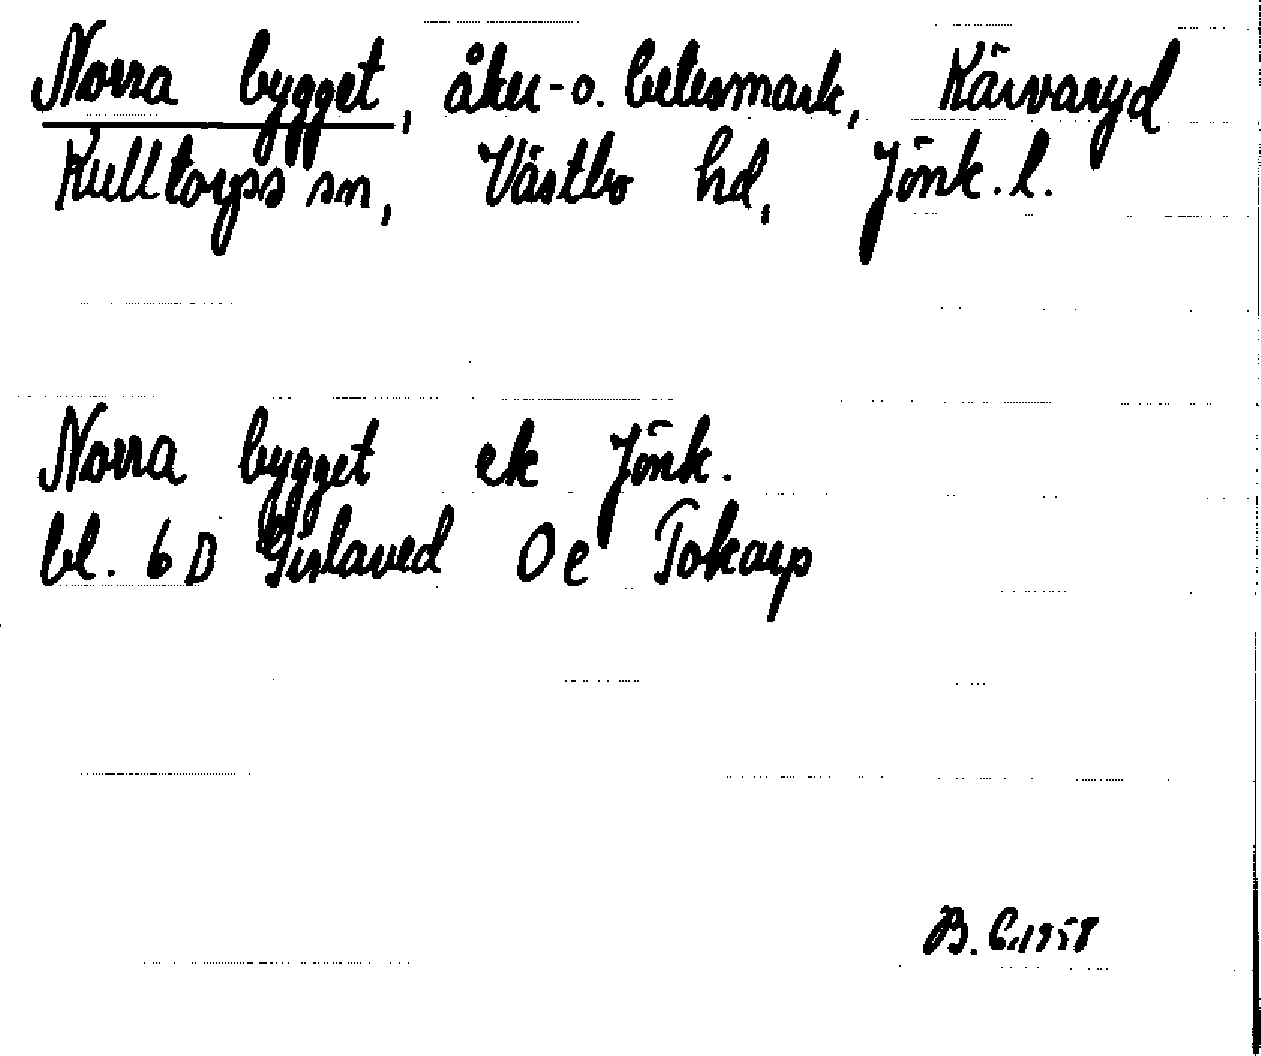 Norra bygget, åker- o. betesmark, Kärvaryd
Kulltorps sn, Västbo hd, Jönk. l.
Norra bygget ek Jönk.
bl. 6 D Gislaved 0 e Tokarp
B. G. 1958